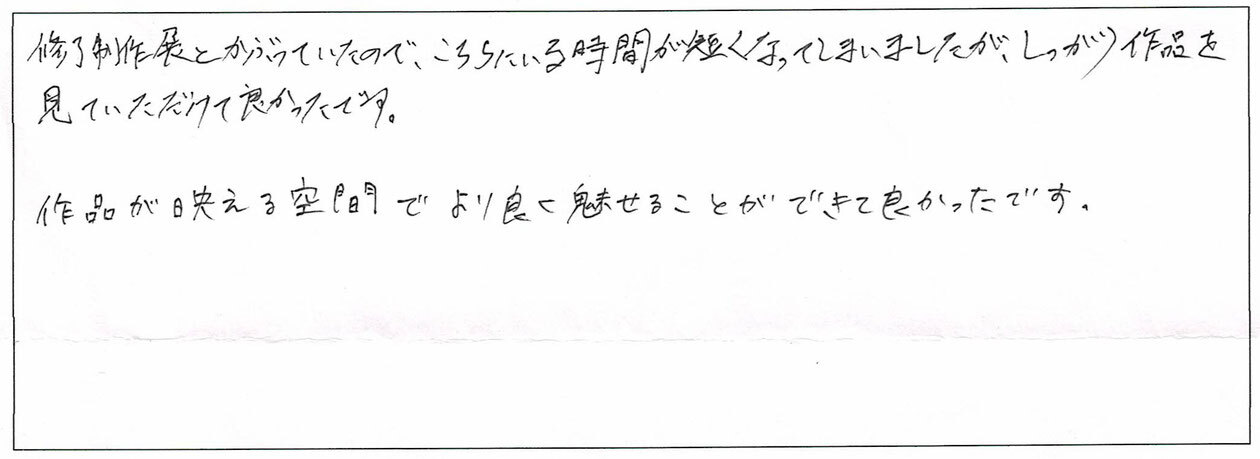 修了制作展とかぶっていたので、こちらにいる時間が短くなってしまいましたが、しっかり作品を
見ていただけて良かったです。
作品が映える空間でより良く魅せることができて良かったです。